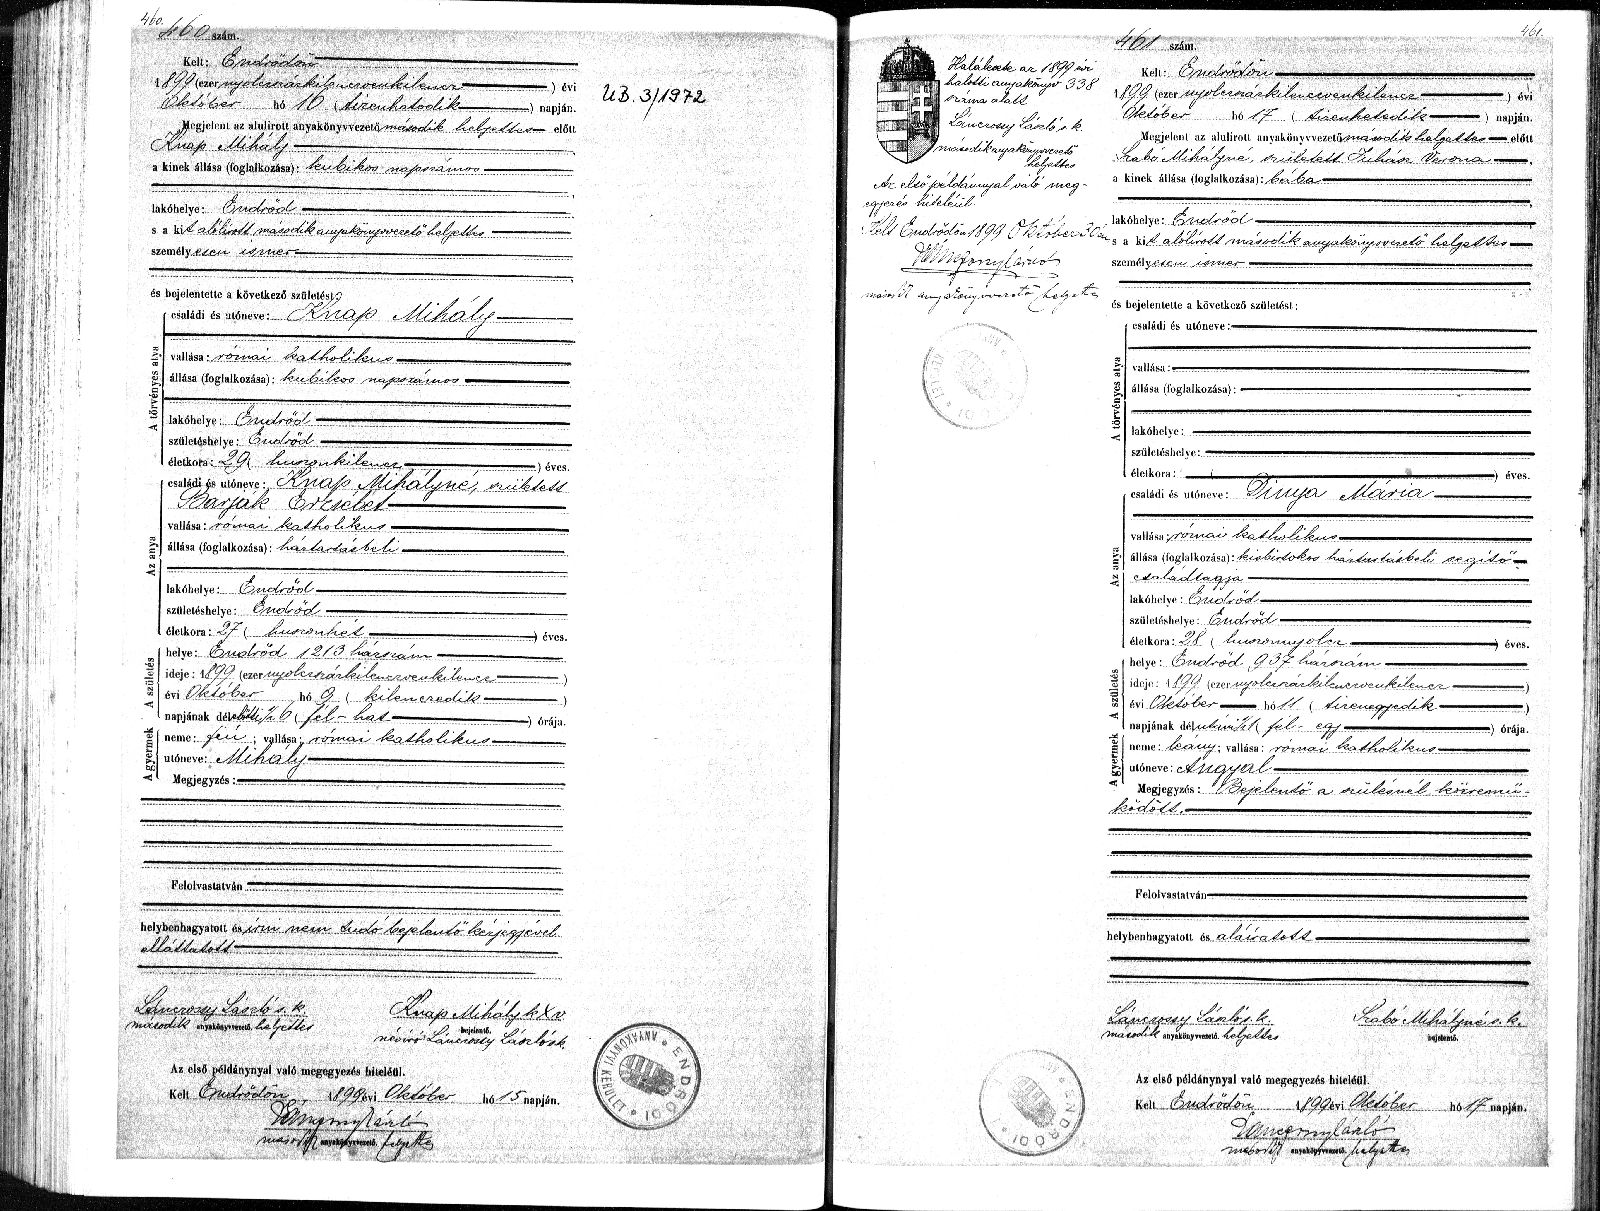 460.
460 szám.
Kelt: Endrődön
1899 (ezer nyolcszázkilencvenkilencz) évi
Október hó 16 (tizenhatodik) napján.
Megjelent az alulirott anyakönyvvezető második helyettes előtt
Knap Mihály
a kinek állása (foglalkozása): kubikos napszámos
lakóhelye: Endrőd
s a kit alólirott második anyakönyvvezető helyettes
személyesen ismer
és bejelentette a következő születést:
A törvényes atya
családi és utóneve: Knap Mihály
vallása: római katholikus
állása (foglalkozása): kubikos napszámos
lakóhelye: Endrőd
születéshelye: Endrőd
életkora: 29 (huszonkilencz) éves.
Az anya
családi és utóneve: Knap Mihályné, született
Barják Erzsébet
vallása: római katholikus
állása (foglalkozása): háztartásbeli
lakóhelye: Endrőd
születéshelye: Endrőd
életkora: 27 (huszonhét) éves.
A születés
helye: Endrőd 1213 házszám
ideje: 1899 (ezer nyolcszázkilencvenkilencz)
évi Október hó 9 (kilenczedik)
napjának délelőtti ½ 6 (fél-hat) órája.
A gyermek
neme: fiú; vallása: római katholikus
utóneve: Mihály
Megjegyzés:
Felolvastatván
helybenhagyatott és írni nem tudó bejelentő kézjegyével
elláttatott
Lánczossy László s. k.
második anyakönyvvezető helyettes
Knap Mihály k X v.
bejelentő.
névíró Lánczossy László sk.
Az első példánynyal való megegyezés hiteléül.
Kelt Endrődön, 1899 évi Október hó 15 napján.
Lánczossy László
második anyakönyvvezető helyettes
UB. 3/1972
ENDRŐDI * ANYAKÖNYVI KERÜLET *
461.
Halálozek az 1899 évi
halotti anyakönyv 338
száma alatt
Lánczossy László s. k.
második anyakönyvvezető
helyettes
Az első példánnyal való meg-
egyezés hiteléül.
Kelt Endrődön 1899 Október 30án
Lánczossy László
második anyakönyvvezető helyettes
461 szám.
Kelt: Endrődön
1899 (ezer nyolcszázkilencvenkilencz) évi
Október hó 17 (tizenhetedik) napján.
Megjelent az alulirott anyakönyvvezető második helyettes előtt
Szabó Mihályné, született Juhász Verona
a kinek állása (foglalkozása): bába
lakóhelye: Endrőd
s a kit alólirott második anyakönyvvezető helyettes
személyesen ismer
és bejelentette a következő születést:
A törvényes atya
családi és utóneve:
vallása:
állása (foglalkozása):
lakóhelye:
születéshelye:
életkora: ( ) éves.
Az anya
családi és utóneve: Dinya Mária
vallása: római katholikus
állása (foglalkozása): kisbirtokos háztartásbeli segítő
családtagja
lakóhelye: Endrőd
születéshelye: Endrőd
életkora: 28 (huszonnyolcz) éves.
A születés
helye: Endrőd 937 házszám
ideje: 1899 (ezer nyolcszázkilencvenkilencz)
évi Október hó 11 (tizenegyedik)
napjának délutáni ½1 (fél-egy) órája.
A gyermek
neme: leány; vallása: római katholikus
utóneve: Angyal
Megjegyzés: Bejelentő a szülésnél közremű-
ködött.
Felolvastatván
helybenhagyatott és aláiratott
Lánczossy László s. k.
második anyakönyvvezető helyettes
Szabó Mihályné s. k.
bejelentő.
Az első példánynyal való megegyezés hiteléül.
Kelt Endrődön 1899 évi Október hó 17 napján.
Lánczossy László
második anyakönyvvezető helyettes